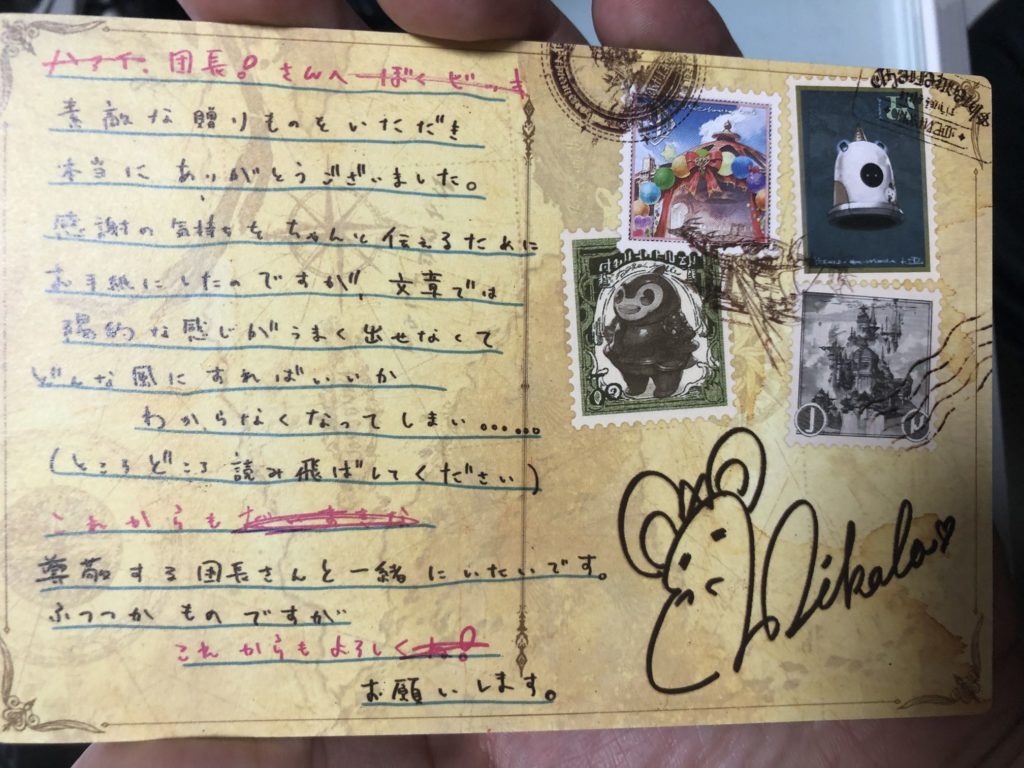 ハァイ、団長！さんへ ぼくビッす
素敵な贈りものをいただき
本当にありがとうございました。
感謝の気持ちをちゃんと伝えるために
お手紙にしたのですが、文章では
陽的な感じがうまく出せなくて
どんな風にすればいいか
わからなくなってしまい……
(ところどころ読み飛ばしてください)
これからもだいすきな
尊敬する団長さんと一緒にいたいです。
ふつつかものですが
これからもよろしくね！
お願いします。
Nikala